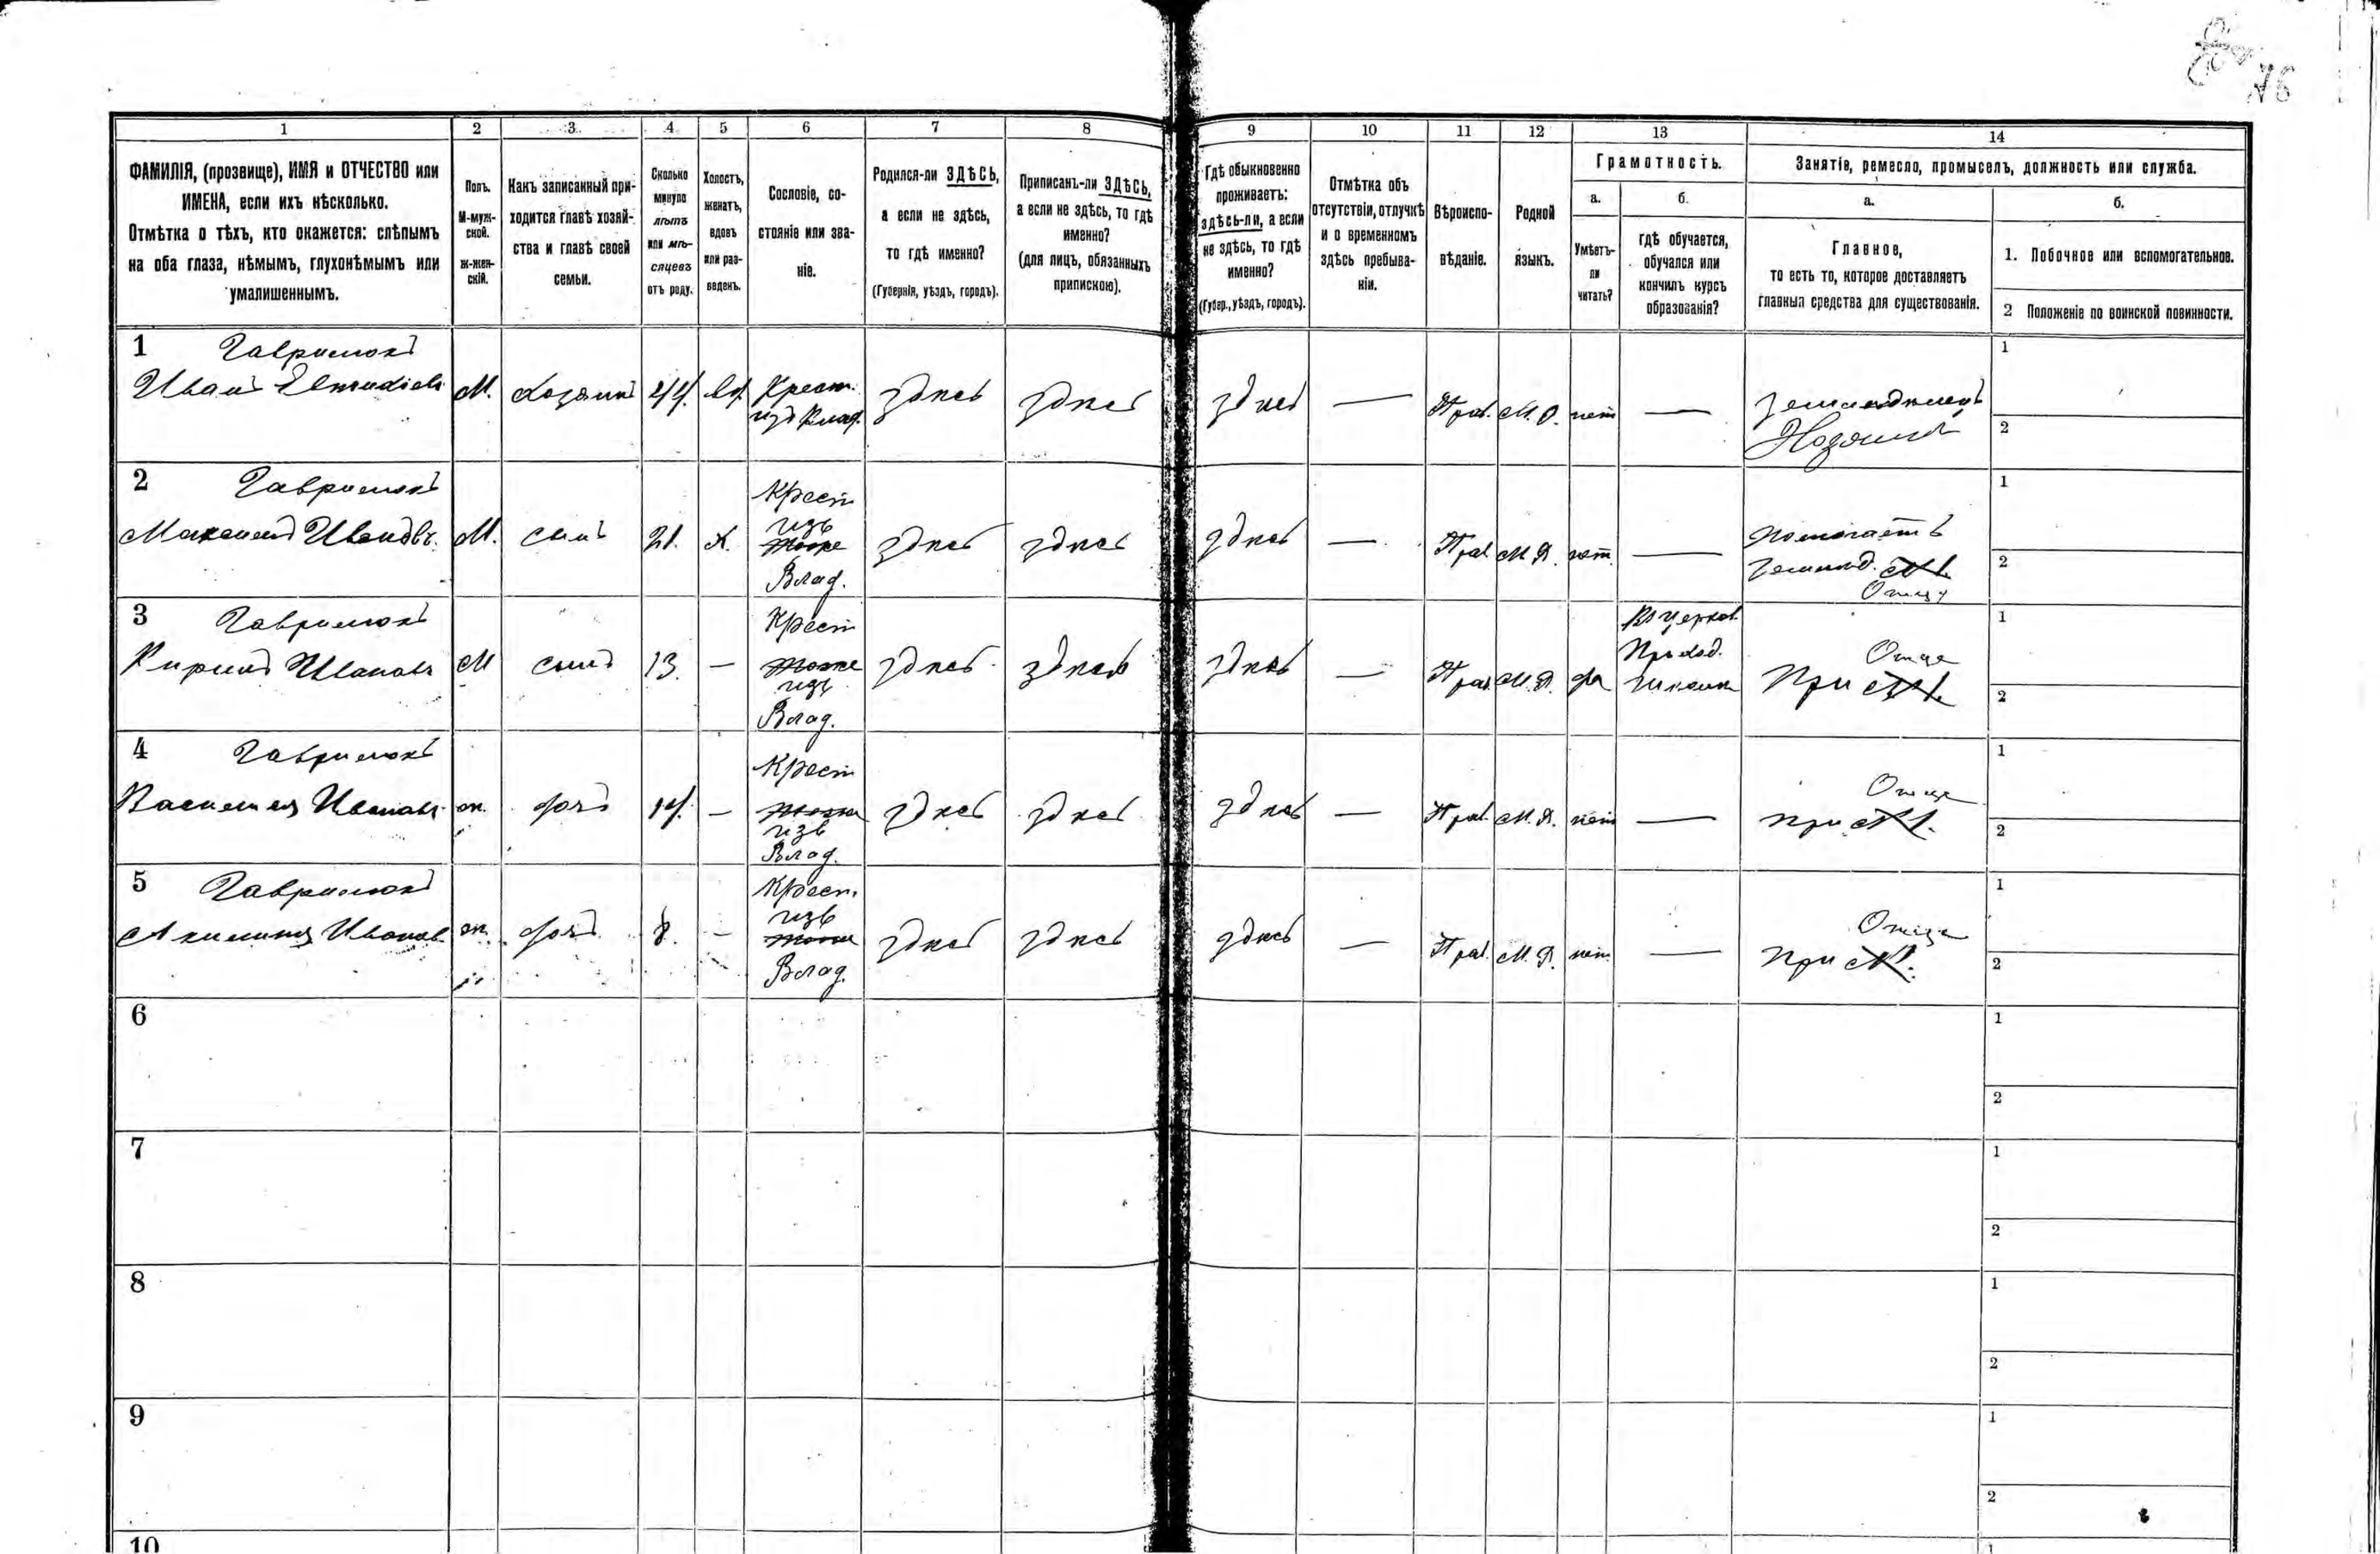 76
1 2 3 4 5 6 7 8 9 10 11 12 13 14
ФАМИЛІЯ, (прозвище), ИМЯ и ОТЧЕСТВО или
ИМЕНА, если ихъ нѣсколько.
Отмѣтка о тѣхъ, кто окажется: слѣпымъ
на оба глаза, нѣмымъ, глухонѣмымъ или
умалишеннымъ.
Полъ.
М-муж-
ской.
Ж-жен-
скій.
Какъ записанный при-
ходится главѣ хозяй-
ства и главѣ своей
семьи.
Сколько
минуло
лѣтъ
или мѣ-
сяцевъ
отъ роду.
Холостъ,
женатъ,
вдовъ
или раз-
веденъ.
Сословіе, со-
стояніе или зва-
ніе.
Родился-ли ЗДѢСЬ,
а если не здѣсь,
то гдѣ именно?
(Губернія, уѣздъ, городъ).
Приписанъ-ли ЗДѢСЬ,
а если не здѣсь, то гдѣ
именно?
(для лицъ, обязанныхъ
припискою).
Гдѣ обыкновенно
проживаетъ:
здѣсь-ли, а если
не здѣсь, то гдѣ
именно?
(Губер., уѣздъ, городъ).
Отмѣтка объ
отсутствіи, отлучкѣ
и о временномъ
здѣсь пребыва-
ніи.
Вѣроиспо-
вѣданіе.
Родной
языкъ.
Грамотность.
а.
Умѣетъ-
ли
читать?
б.
гдѣ обучается,
обучался или
кончилъ курсъ
образованія?
Занятіе, ремесло, промыселъ, должность или служба.
а.
Главное,
то есть то, которое доставляетъ
главныя средства для существованія.
б.
1. Побочное или вспомогательное.
2 Положеніе по воинской повинности.
1 Гаврилюкъ
Иванъ М. Хозяинъ 44. вд. Крест. изъ Влад. здѣсь здѣсь здѣсь — Прав. М. Р. нѣт — Земледѣлецъ
Хозяинъ
1
2
2 Гаврилюкъ
Иванов. М. сынъ 21. Х. Крест изъ тоже Влад. здѣсь здѣсь здѣсь — Прав. М. Р. нѣт — помогаетъ
Землед.
Отцу
1
2
3 Гаврилюкъ
Кирилъ Иванов М сынъ 13. — Крест тоже изъ Влад. здѣсь здѣсь здѣсь — Прав. М. Р. да Въ церков. Приход. школѣ при Отцѣ
1
2
4 Гаврилюкъ
Василиса Иванов. ж. дочь 14. — Крест тоже изъ Влад. здѣсь здѣсь здѣсь — Прав. М. Р. нѣт — при Отцѣ
1
2
5 Гаврилюкъ
Акилина Иванов ж. дочь 8. — Крест. изъ тоже Влад. здѣсь здѣсь здѣсь — Прав. М. Р. нѣт — при Отцѣ
1
2
6
1
2
7
1
2
8
1
2
9
1
2
10
1